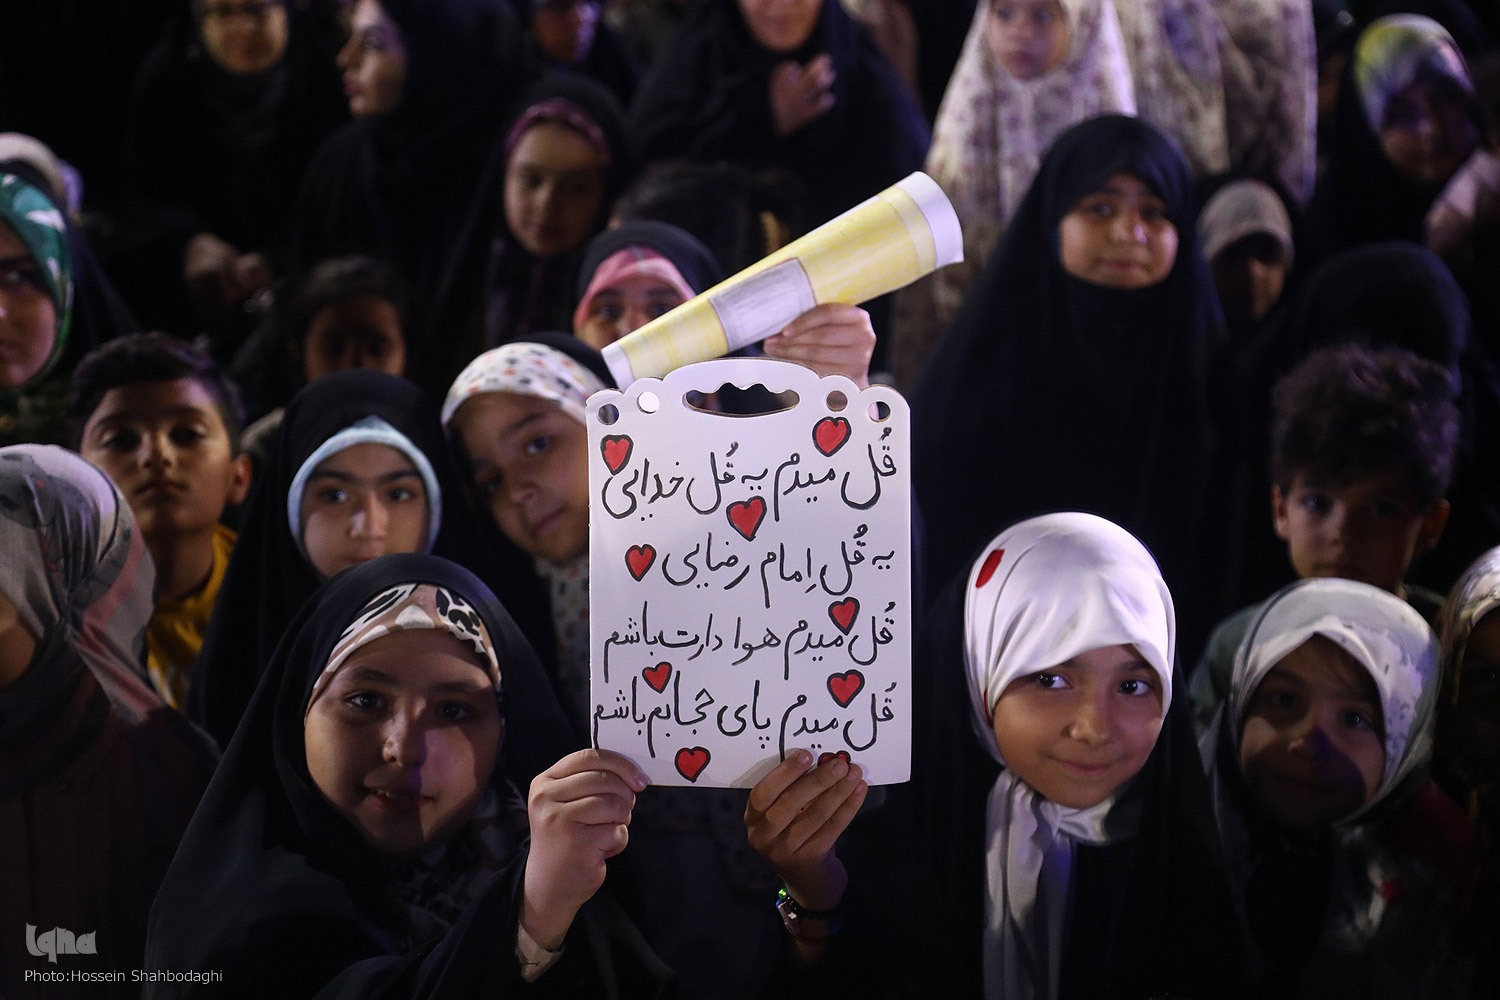 قُل میدم یه قُل خدایی
یه قُل اِمام رضایی
قُل میدم هوا دارت باشم
قُل میدم پای حجابم باشم
Iqna
Photo:Hossein Shahbodaghi